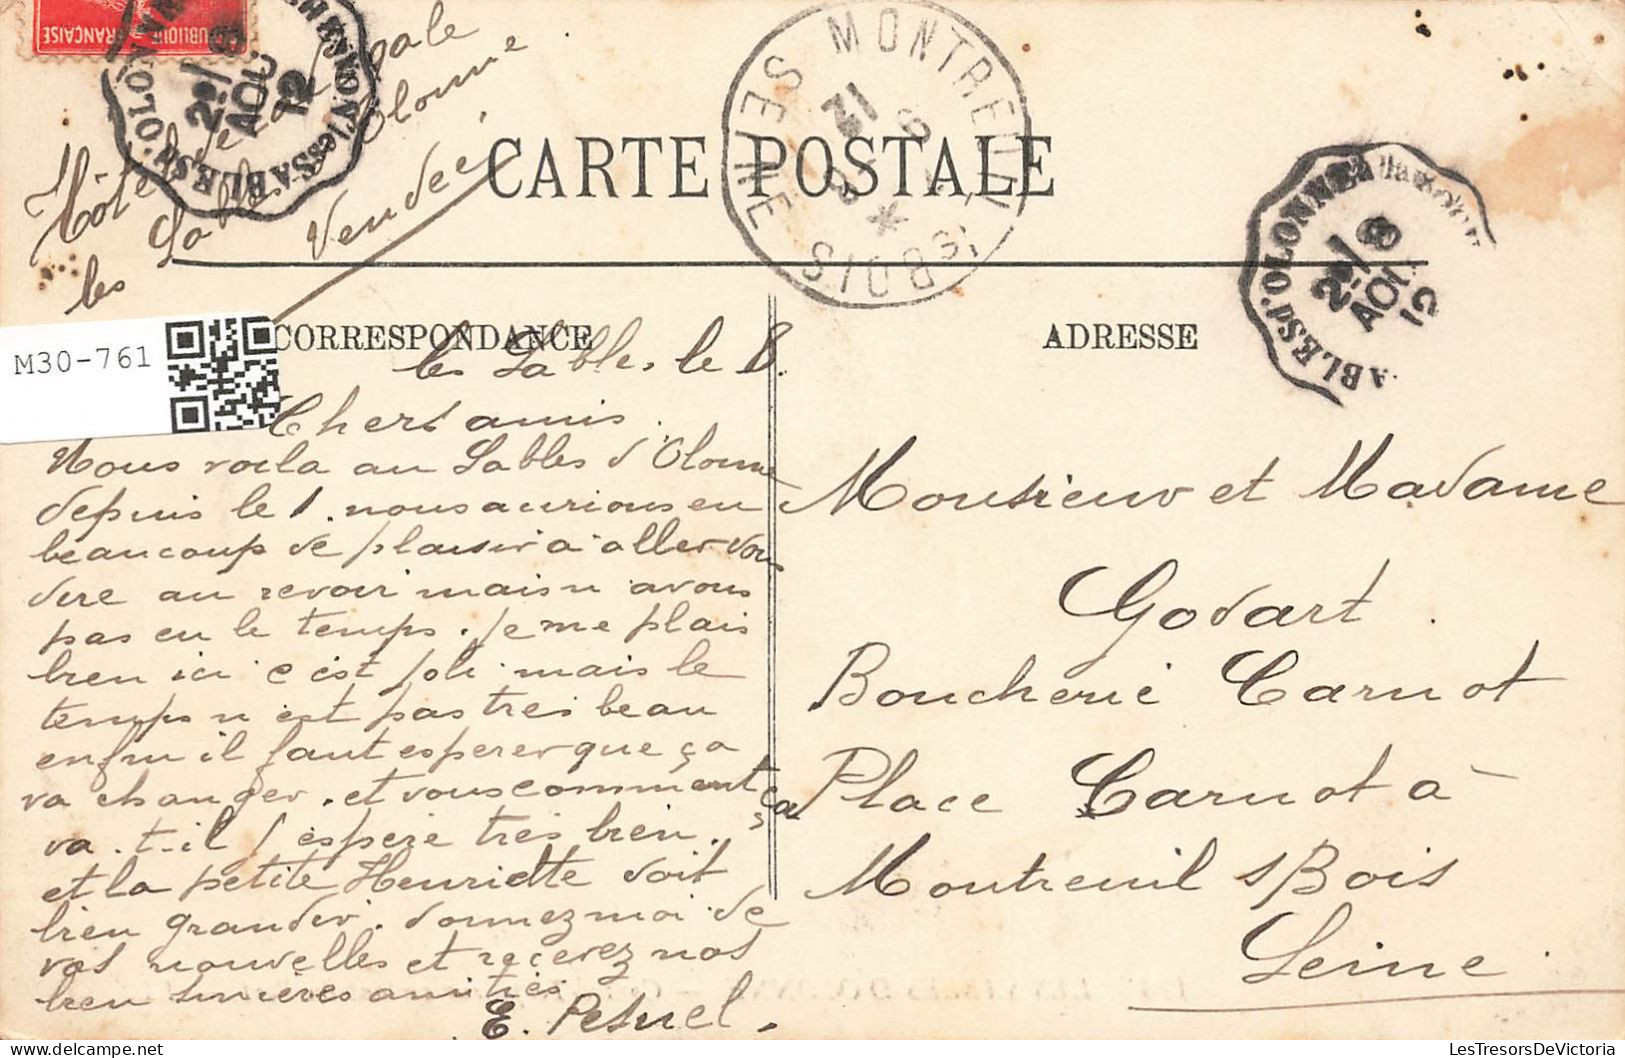 RÉPUBLIQUE FRANÇAISE
Hôtel de la
les Sables Olonne
Vendée
SABLES D'OLONNE
2e/8
AOU
12
MONTREUIL s/BOIS
SEINE
CARTE POSTALE
SABLES D'OLONNE
2e/8
AOU
12
CORRESPONDANCE
ADRESSE
M30-761
les Sables, le 8.
Chers amis.
Nous voila au Sables d'Olonne
depuis le 1. nous aurions eu
beaucoup de plaisir a aller vous
dire au revoir mais n avons
pas eu le temps. je me plais
bien ici c est joli mais le
temps n est pas tres beau
enfin il faut esperer que ça
va changer. et vous comment ça
va.t-il j espère très bien.
et la petite Henriette doit
bien grandir. donnez moi de
vos nouvelles et recevez nos
bien sincères amitiés
E. Pesnel.
Monsieur et Madame
Godart.
Boucherie Carnot
Place Carnot à
Montreuil s/Bois
Seine.
LesTresorsDeVictoria